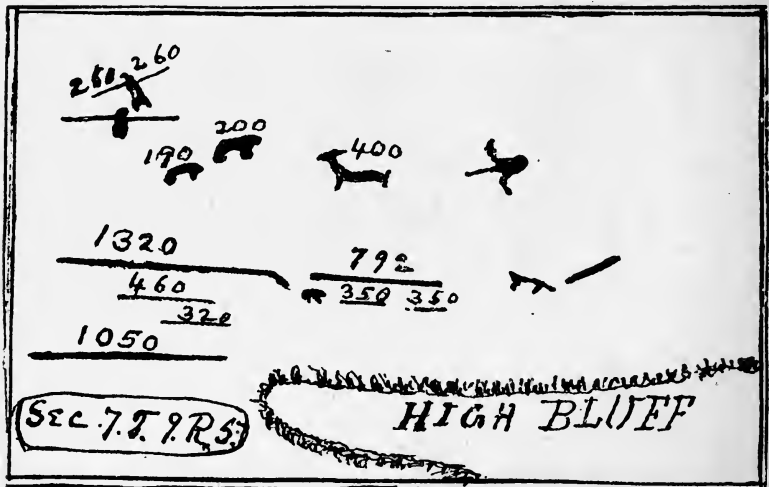 260 260
200
190
400
1320
460
320
1050
350 350
SEC. 7. T. 9. R. 5.
HIGH BLUFF